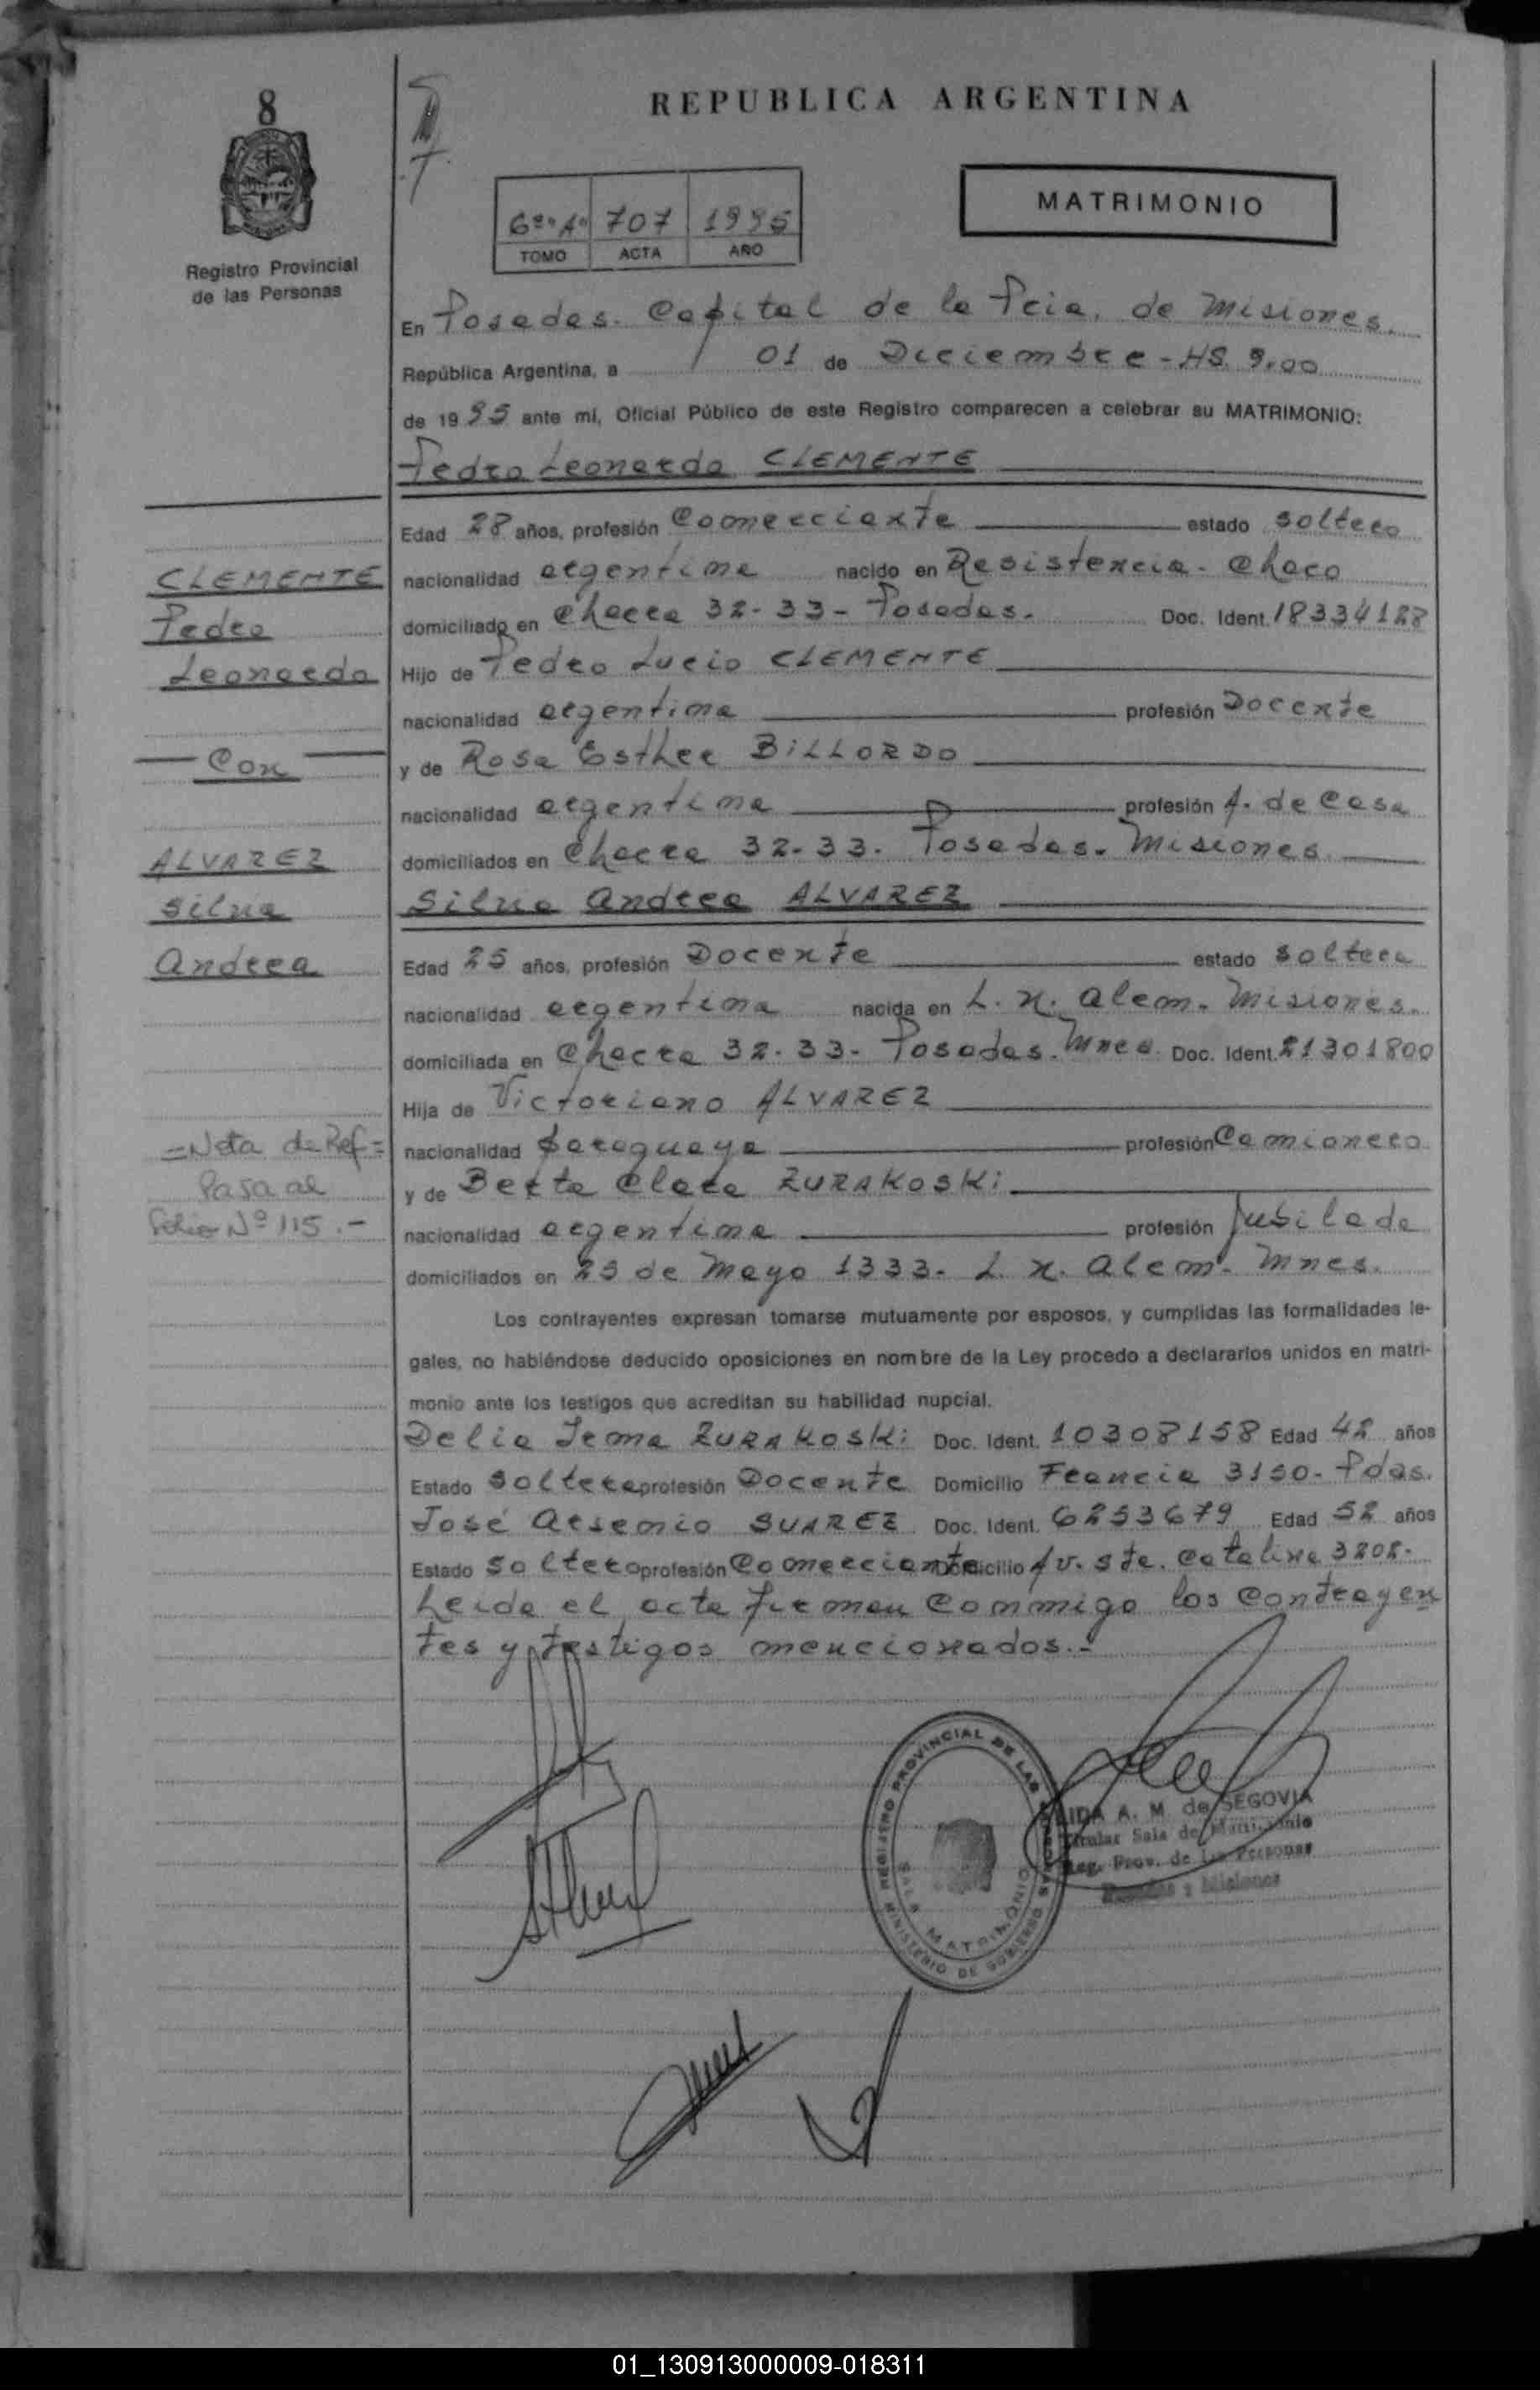 8
REPUBLICA ARGENTINA
MATRIMONIO
6º A 707 1995
TOMO ACTA AÑO
Registro Provincial
de las Personas
En Posadas. Capital de la Pcia. de Misiones.
República Argentina, a 01 de Diciembre - HS. 9.00
de 1995 ante mi, Oficial Público de este Registro comparecen a celebrar su MATRIMONIO:
Pedro Leonardo CLEMENTE
Edad 28 años, profesión Comerciante estado soltero
CLEMENTE
nacionalidad argentina nacido en Resistencia - Chaco
Pedro
domiciliado en Chacra 32-33- Posadas. Doc. Ident. 18334188
Leonardo
Hijo de Pedro Lucio CLEMENTE
nacionalidad argentina profesión Docente
Con
y de Rosa Esther BILLORDO
nacionalidad argentina profesión A. de Casa
ALVAREZ
domiciliados en Chacra 32-33. Posadas. Misiones
Silvia
Silvia Andrea ALVAREZ
Andrea
Edad 25 años, profesión Docente estado soltera
nacionalidad argentina nacida en L. N. Alem. Misiones.
domiciliada en Chacra 32-33- Posadas. Mnes. Doc. Ident. 21301800
Hija de Victoriano ALVAREZ
=Nota de Ref=
nacionalidad paraguaya profesión Camionero
Pasa al
y de Berta Clara ZURAKOSKi
Folio Nº 115.-
nacionalidad argentina profesión Jubilada
domiciliados en 25 de Mayo 1333- L. N. Alem. Mnes.
Los contrayentes expresan tomarse mutuamente por esposos, y cumplidas las formalidades le-
gales, no habiéndose deducido oposiciones en nombre de la Ley procedo a declararlos unidos en matri-
monio ante los testigos que acreditan su habilidad nupcial.
Delia Irma ZURAKOSKi Doc. Ident. 10308158 Edad 42 años
Estado soltera profesión Docente Domicilio Francia 3150- Pdas.
José Arsenio SUAREZ Doc. Ident. 6253679 Edad 52 años
Estado soltero profesión Comerciante Domicilio Av. Sta. Catalina 3208-
Leida el acta firman conmigo los contrayen
tes y testigos mencionados.-
REGISTRO PROVINCIAL DE LAS PERSONAS
SALA MATRIMONIO
MINISTERIO DE GOBIERNO
A. M. de SEGOVIA
Titular Sala de Matrimonio
Reg. Prov. de las Personas
Posadas - Misiones
01_130913000009-018311